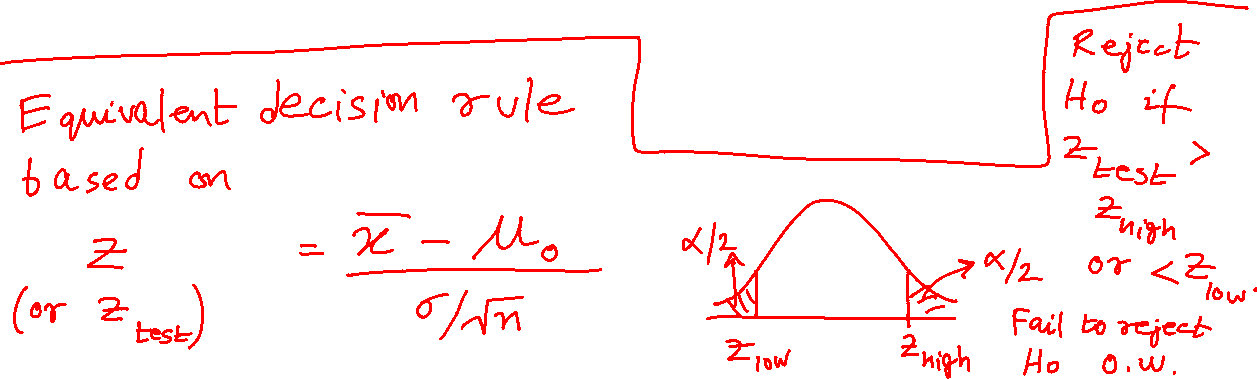 Equivalent decision rule
based on
Z = x̄ - μ₀ / σ/√n
(or Z test)
α/2
α/2
Z low
Z high
Reject
Ho if
Z test >
Z high
or < Z low.
Fail to reject
Ho O.W.